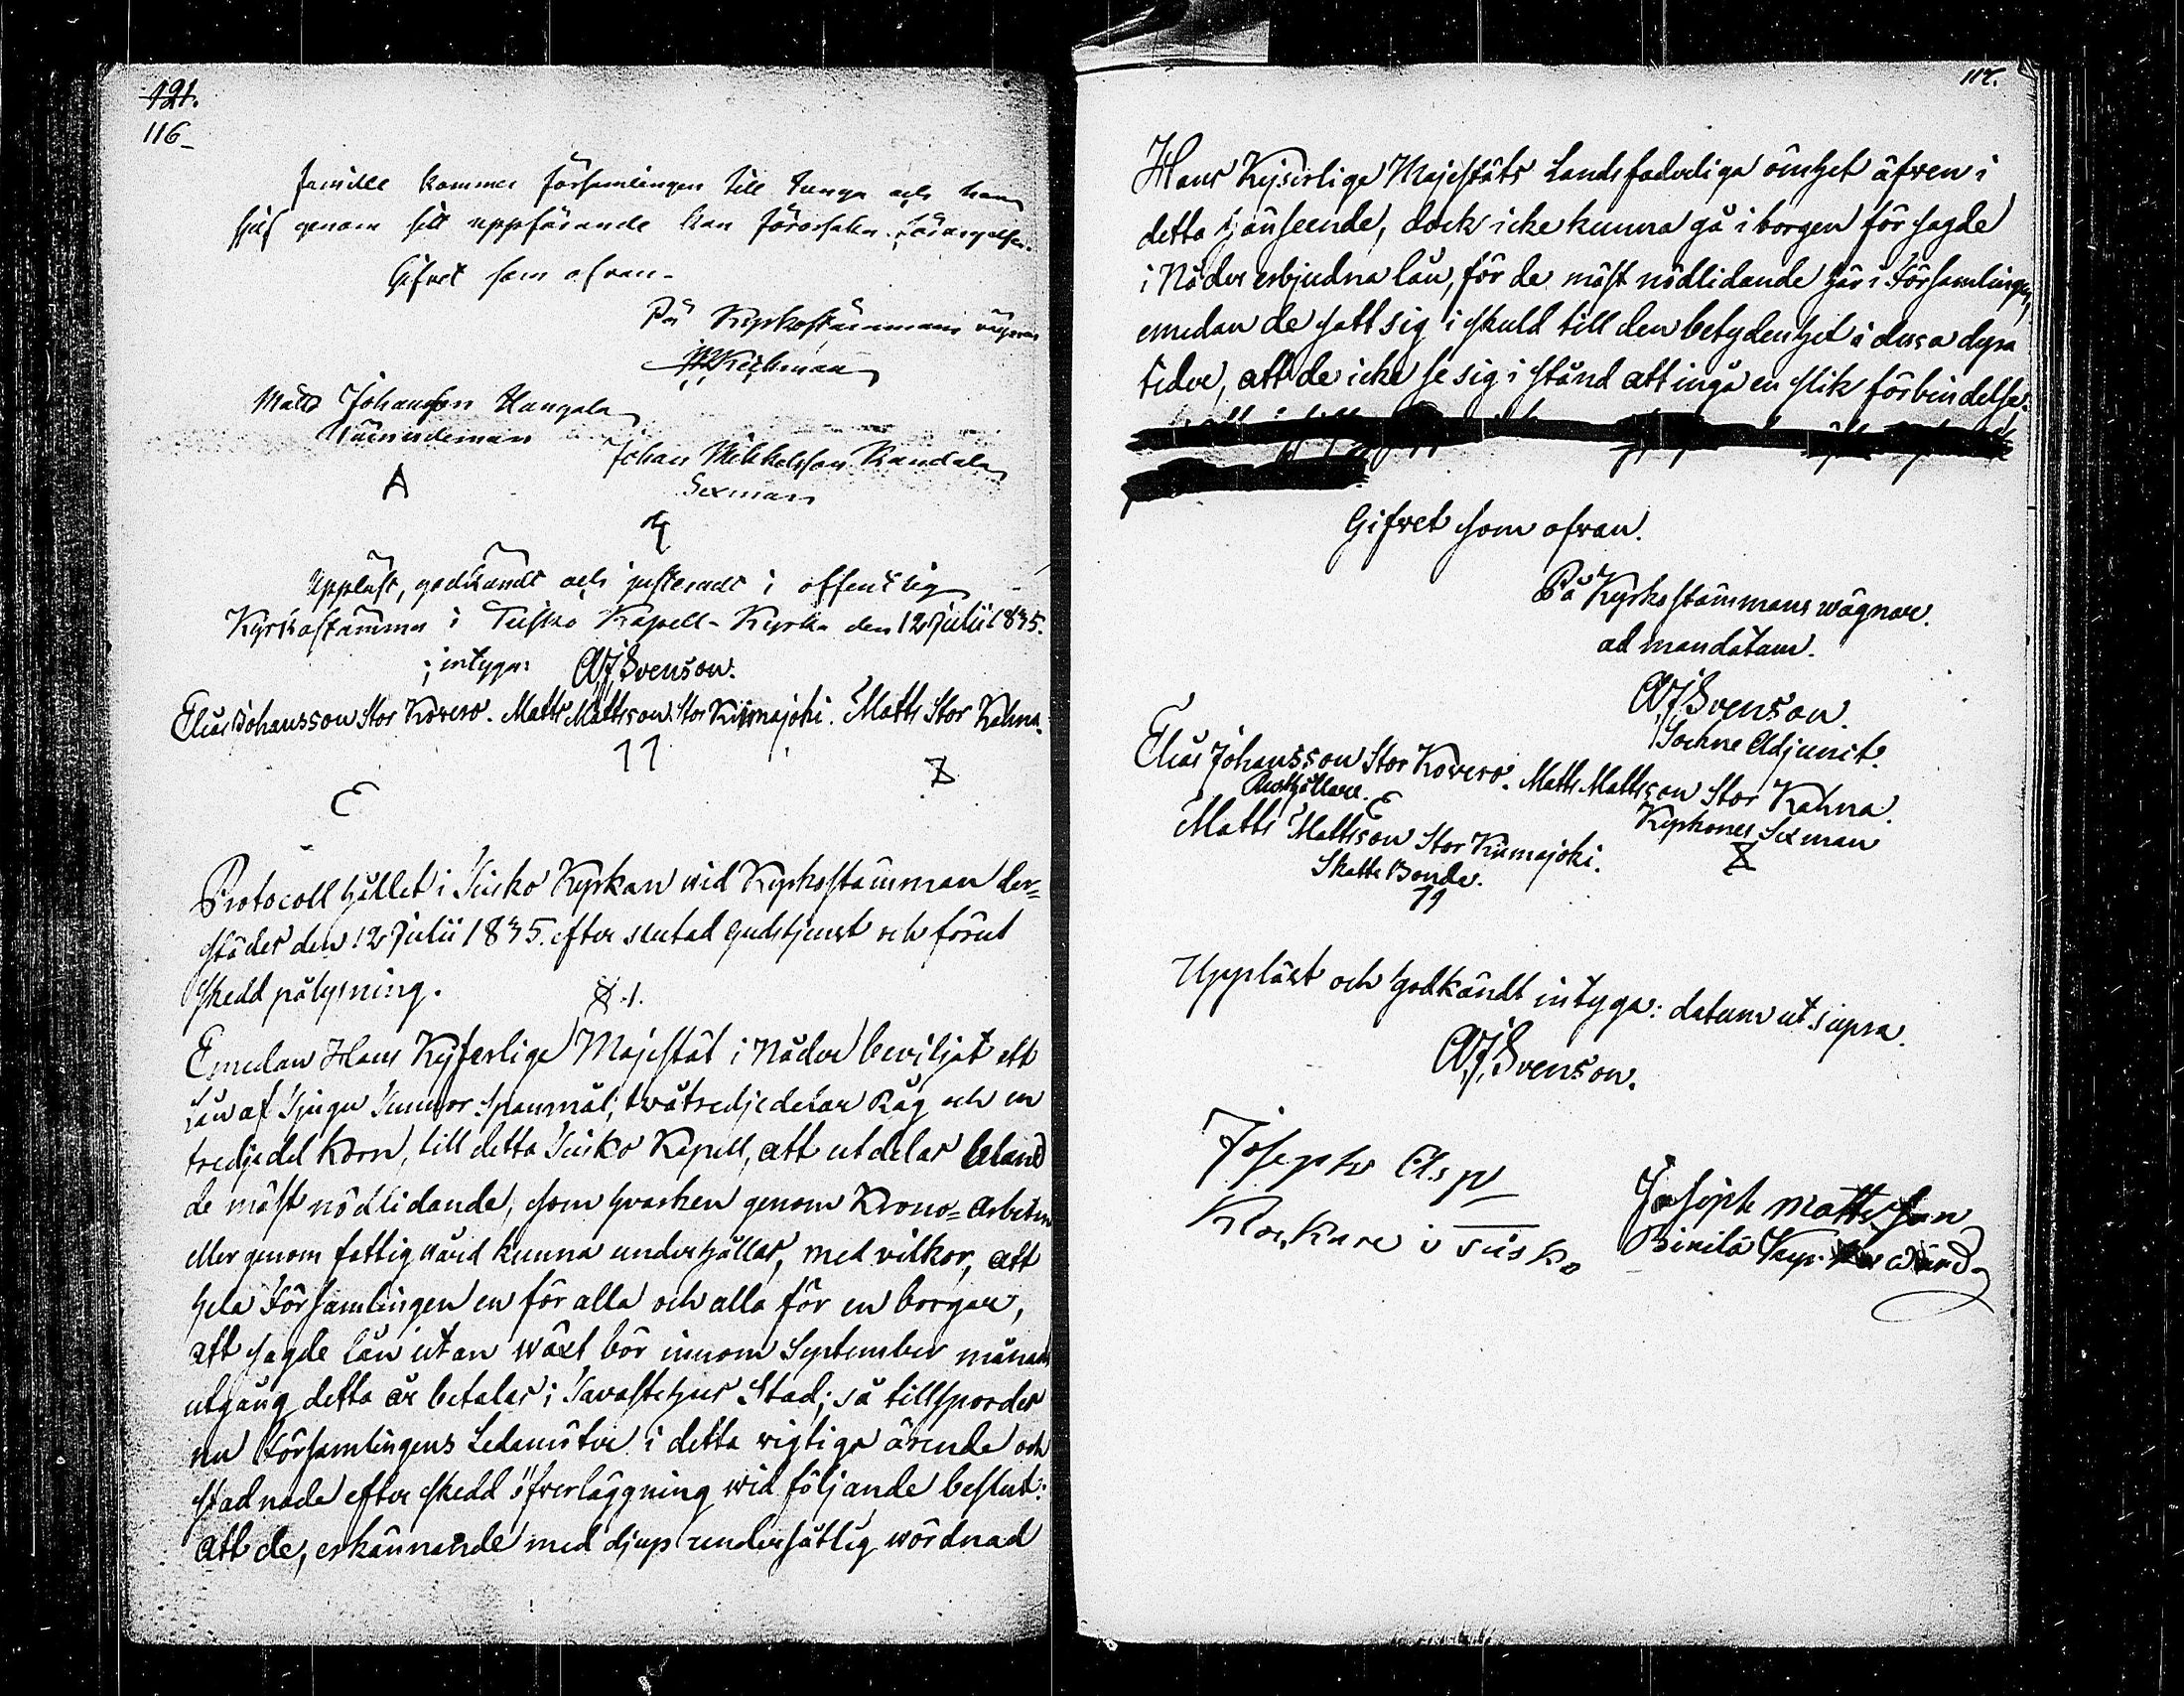 121.
116
familie kommer församlingen till tunga och han
sjelf genom sitt uppförande kan förorsaka förargelser.
Gifvet som ofvan.
På Kyrkostämmans vägnar
Matts Johansson Hangala
Nämndeman
Johan Mikkelsson Randala
Sexman
A
Uppläst, godkändt och justeradt i offentlig
Kyrkostämma i Tiisko Kapell-Kyrka den 12 Julii 1835.
; intyga: A. J. Svenson.
Elias Johansson Stor Kovero. Matts Mattsson Stor Kiimajoki. Matts Stor Kahna.
Protocoll hållet i Kisko Kyrkan wid Kyrkostämman der=
städes den 12 Julii 1835. efter slutad Gudstjenst och förut
skedd pålysning.
§.1.
Emedan Hans Kejserliga Majestät i Nåder beviljat ett
Lån af Tjugu Tunnor Spannmål; twåtredjedelar Råg och en
tredjedel Korn, till detta Kapell, att utdelas bland
de mäst nödlidande, som hvarken genom Krono=arbeten
eller genom fattigvård kunna underhållas, med vilkor, att
hela Församlingen en för alla och alla för en borgar,
att sagde lån utan växt bör innom September månads
utgång detta år betalas i Tavastehus Stad; så tillspordes
nu Församlingens Ledamöter i detta vigtiga ärende och
stadnade efter skedd öfverläggning wid följande beslut:
att de, erkännande med djup undersåtlig wördnad
117.
Hans Kejserliga Majestäts Landsfaderliga ömhet äfven i
detta hänseende, dock icke kunna gå i borgen för sagde
i Nåder erbjudna lån, för de mäst nödlidande här i Församlingen,
emedan de satt sig i skuld till den betydenhet i dessa dyra
tider, att de icke se sig i stånd att ingå en slik förbindelse.
Gifvet som ofvan.
På Kyrkostämmans wägnar.
ad mandatum.
A. J. Svenson.
Sockne Adjunct.
Elias Johansson Stor Kovero. Matts Mattsson Stor Kahna.
Rusthållare. Kyrkones Sexman
Matts Mattsson Stor Kiimajoki.
Skatte Bonde.
Uppläst och godkändt intyga: datum ut supra.
A. J. Svenson.
Joseph Asp
Klockare i
Joseph Mattsson